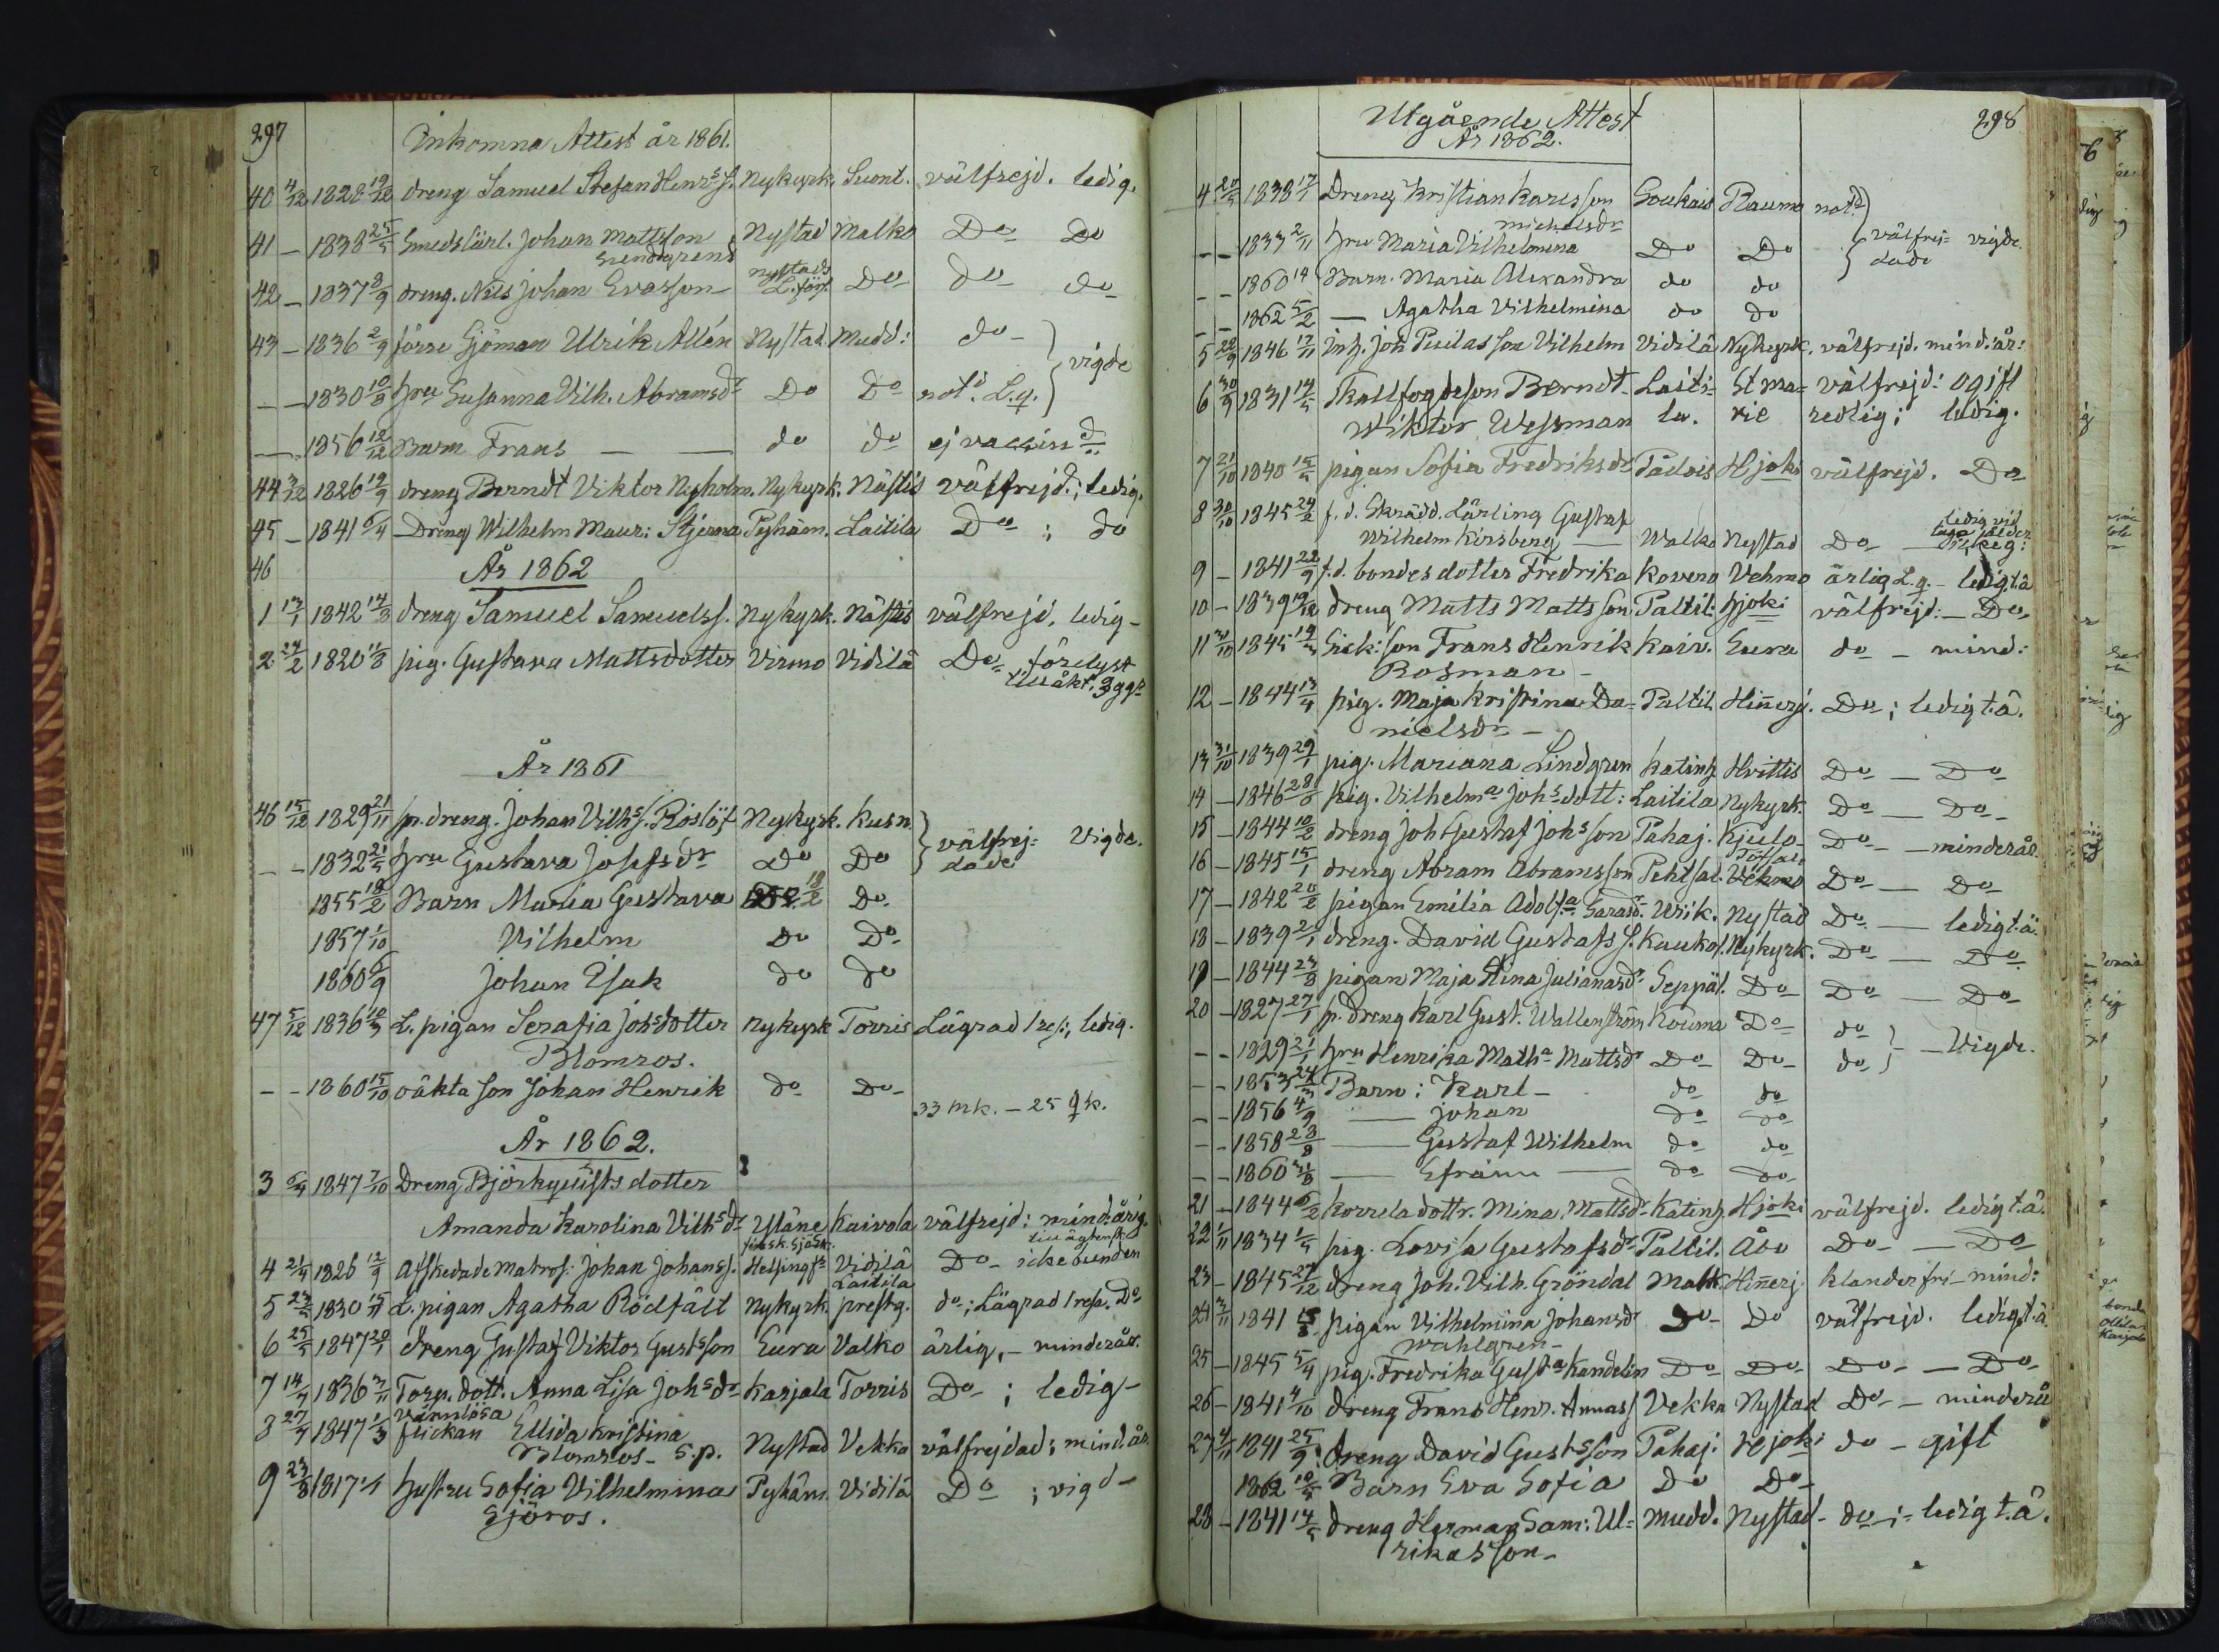 297
Inkomna Attest år 1861.
40 4/12 1828 19/12 dreng Samuel Stefan Henr:s S. Nykyrk. Suont. välfrejd. ledig.
41 - 1838 25/5 Smedslärl. Johan Mattsson Nystad Malko Do Do
42 - 1837 3/9 dreng. Nils Johan Evasson Nystads L.förs. Do do do
43 - 1836 2/9 förre Sjöman Ulrik Allén Nystad. Mudd: do
vigde
- - 1830 10/8 hru Susanna Vilh. Abramsdr Do Do not:d L.q.
- 1856 12/12 Barn Frans do do ej vaccin:d
44 3/12 1826 19/9 dreng Berndt Viktor Nyholm. Nykyrk. Nästis välfrejd.; ledig.
45 - 1841 6/4 Dreng Wilhelm Maur: Stjerna Pyhäm. Laitila Do ; do
46 År 1862
1 13/1 1842 14/8 dreng Samuel Samuelss. Nykyrk. Nästis välfrejd, ledig -
2 24/2 1820 11/8 pig. Gustava Mattsdotter Virmo Vidilä Do förelyst
till äkt. 3 ggr
År 1861
46 15/12 1829 21/11 sp. dreng. Johan Vilh:s S. Röslöf Nykyrk. Kusn.
välfrej=dade Vigde.
- - 1832 21/5 hru Gustava Josefsdr Do Do
1855 18/2 Barn Maria Gustava 18/2 Do
1857 1/10 Vilhelm Do Do
1860 6/9 Johan Isak do do
47 5/12 1836 10/3 L. pigan Serafia Johsdotter Nykyrk Torris Lägrad 1 res:, ledig.
Blomros.
- - 1860 15/10 oäkta son Johan Henrik do Do
33 mk. - 25 qk.
År 1862.
3 6/4 1847 7/10 Dreng Björkquists dotter
Amanda Karolina Vilhsdr Yläne Kaivola välfrejd: mind:årig.
finsk. Sjöek. till ägtensk.
4 21/4 1826 12/9 Afskedade Matros: Johan Johanss. Helsingfs Vidilä Do - icke bunden
Laitila
5 23/5 1830 15/11 L. pigan Agatha Rödfält Nykyrk. prestg. do; Lägrad 1 resa. Do
6 25/5 1847 20/1 dreng Gustaf Viktor Gustsson Eura Valko ärlig, - minderår.
7 14/7 1836 3/11 Torp. dott. Anna Lisa Johsdr Karjala Torris Do ; ledig -
värnlösa
8 27/7 1847 1/3 flickan Elida Kristina
Blomros - S.p. Nystad Vekka välfrejdad; mind.år.
9 23/8 1817 hustru Sofia Vilhelmina Pyhäm. Vidilä Do ; vigd -
Sjöros.
298
Utgående Attest
År 1862.
4 20/5 1838 17/1 Dreng Kristian Karlsson Soukais Rauma not:d
michelsdr
- - 1833 2/11 hru Maria Vilhelmina Do Do välfrej=dade vigde.
- - 1860 Barn. Maria Alexandra do do
- - 1862 5/2 — Agatha Vilhelmina do do
5 22/9 1846 17/11 Inh. Joh Piilasson Vilhelm Vidilä Nykyrk. välfrejd. mind:år:
6 30/9 1831 14/5 Skallfogdeson Berndt Laiti= St Ma= välfrejd: ogift
Wiktor Wessman la. rie redlig; ledig.
7 21/10 1840 15/5 pigan Sofia Fredriksdr Padois Hjoki välfrejd. Do
8 30/10 1845 24/2 f. d. Skrädd. Lärling Gustaf
Wilhelm Kirsberg — Walko Nystad Do
9 - 1841 22/9 f.d. bondes dotter Fredrika Kovero Vehmo ärlig L.q. - ledig t.ä
10 - 1839 19/12 dreng Matts Mattsson Paltil: Hjoki välfrejd: - Do
11 31/10 1845 19/3 Sick: son Frans Henrik Kaiv. Eura do - mind:
Rosman -
12 - 1844 13/4 pig. Maja Kristina Da= Paltil. Hinnerj. Do ; ledig t.ä.
nielsdr -
13 31/10 1839 29/1 pig. Mariana Lindgren Katinh Hvittis Do - Do
14 - 1846 28/6 pig. Vilhelm:a Joh:s dott: Laitila Nykyrk. Do - Do
15 - 1844 10/2 dreng Joh Gustaf Joh:sson Pahaj. Kjulo Do - minderår.
16 - 1845 15/1 dreng Abram Abramsson Pehtsal. Töfsal. Vehmo Do - Do
17 - 1842 20/2 pigan Emilia Adolf:a Saradr. Wiik. Nystad Do - ledig t.ä.
18 - 1839 2/1 dreng. David Gustafs S. Kaukol. Nykyrk. Do - Do
19 - 1844 23/8 pigan Maja Stina Julianasdr Seppäl. Do Do - Do
20 - 1827 27/1 sp. dreng Karl Gust. Wallenström Kouma Do do
- - 1829 21/1 hru Henrika Math:a Mattsdr Do Do do - Vigde.
- - 1853 24/3 Barn: Karl - do do
- - 1856 4/9 — Johan do do
- - 1858 23/8 — Gustaf Wilhelm do do
- - 1860 31/8 — Efraim — do do
21 - 1844 6/2 Korrela dottr. Mina Mattsdr Katinh. Hjoki välfrejd. ledig t.ä.
22 1/11 1834 1/5 pig. Lovisa Gustafsdr Paltil. Åbo Do - Do
23 - 1845 27/12 dreng Joh. Vilh. Gröndal Malk. Hinnerj. klanderfri - mind:
24 3/11 1841 15/8 pigan Vilhelmina Johansdr Do Do välfrejd. ledig t.ä.
Wahlgren -
25 - 1845 5/4 pig. Fredrika Gust:a Kandelin Do Do Do - Do
26 - 1841 4/10 dreng Frans Henr. Annass Vekka Nystad Do - minderå
27 4/11 1841 25/9 dreng David Gustsson Pahaj: Hjoki do - gift
1862 10/5 Barn Eva Sofia Do Do
28 - 1841 14/5 dreng Herman Sam: Ul= Mudd. Nystad - do - ; - ledig t.ä.
rikasson -